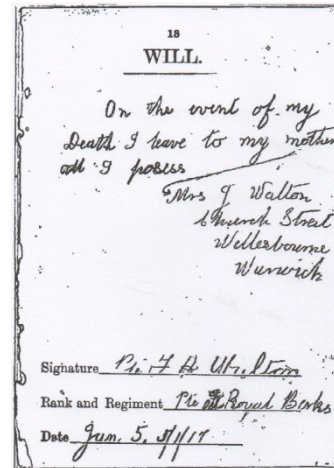 13
WILL.
On the event of my
Death I leave to my mother
all I posess
Mrs J Walton
Church Street
Wellesbourne
Warwick
Signature Pte F H Walton
Rank and Regiment Pte Royal Berks
Date Jan. 5. 5/1/17